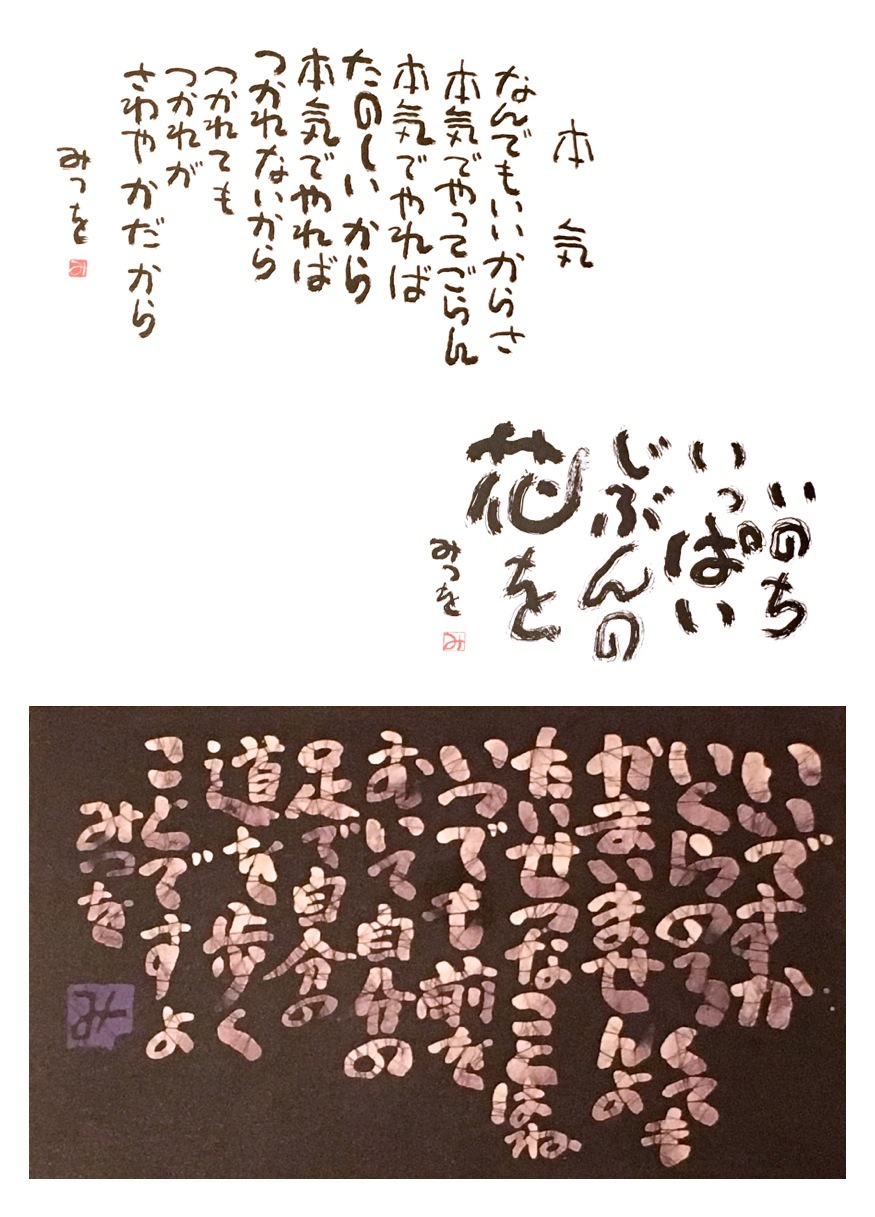 本気
なんでもいいからさ
本気でやってごらん
本気でやれば
たのしいから
本気でやれば
つかれないから
つかれても
つかれが
さわやかだから
みつを
み
いのち
いっぱい
じぶんの
花を
みつを
み
いいですか
いくらのろくても
かまいませんよ
たいせつなことはね
いつでも前を
むいて自分の
足で自分の
道を歩く
ことですよ
みつを
み